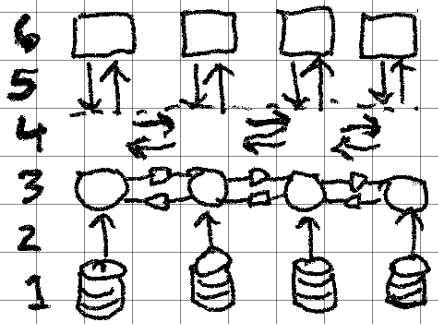 6
5
4
3
2
1